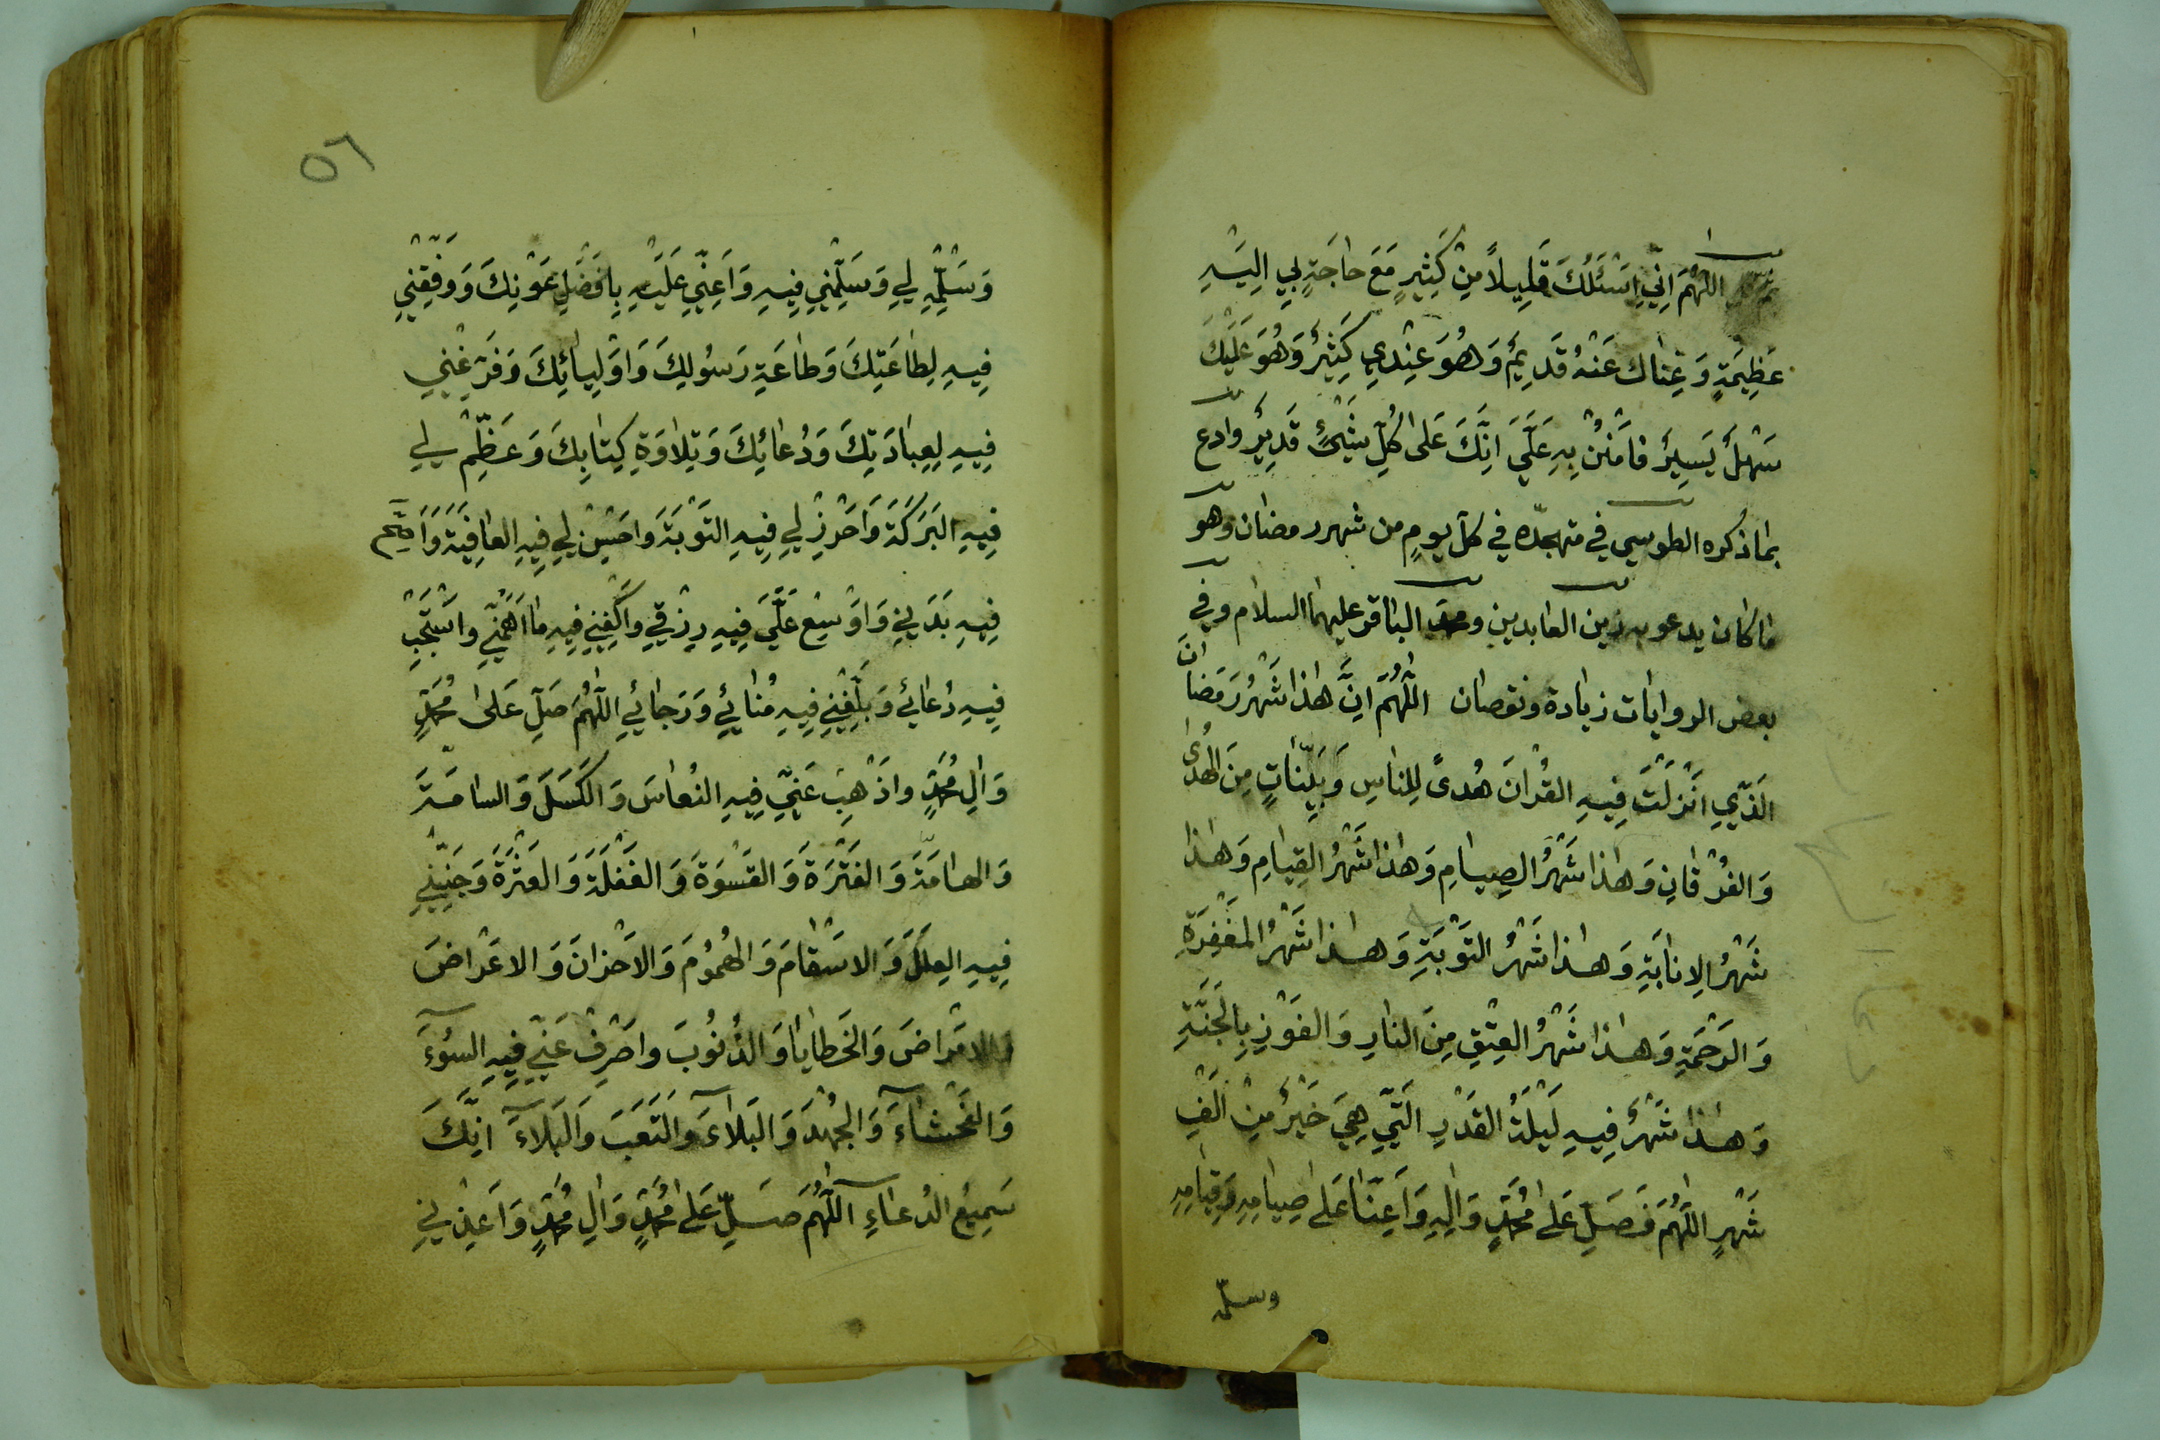 اللّٰهُمَّ اِنّي اَسْئَلُكَ قَلِيلاً مِنْ كَثِيرٍ مَعَ حاجَةٍ بي اِلَيْهِ
عَظِيمَةٍ وَغِناك عَنْهُ قَدِيمٌ وَهُوَ عِنْدي كَثِيرٌ وَهُوَ عَلَيْكَ
سَهْلٌ يَسِيرٌ فَامْنُنْ بِهِ عَلَيَّ اِنَّكَ عَلىٰ كُلِّ شَيْئٍ قَدِيرٌ وادع
بما ذكره الطوسي في متهجّده في كلّ يومٍ من شهر رمضان وهو
ما كان يدعو به زين العابدين ومحمد الباقر عليهما السلام وفي
بعض الروايات زيادة ونقصان اللّٰهُمَّ اِنَّ هٰذا شَهْرُ رَمَضانَ
الَّذي اَنْزَلْتَ فِيهِ القُرْانَ هُدىً لِلنّاسِ وَبَيِّناتٍ مِنَ الهُدىٰ
وَالفُرْقانِ وَهٰذا شَهْرُ الصِيامِ وَهٰذا شَهْرُ القِيامِ وَهٰذا
شَهْرُ الاِنابَةِ وَهٰذا شَهْرُ التَوْبَةِ وَهٰذا شَهْرُ المَغْفِرَةِ
وَالرَحْمَةِ وَهٰذا شَهْرُ العِتْقِ مِنَ النارِ وَالفَوْزِ بِالجَنَّةِ
وَهٰذا شَهْرٌ فِيهِ لَيْلَةُ القَدْرِ الَّتي هِيَ خَيْرٌ مِنْ اَلْفِ
شَهْرٍ اللّٰهُمَّ فَصَلِّ عَلىٰ مُحَمَّدٍ وَالِهِ وَاَعِنّا عَلىٰ صِيامِهِ وَقِيامِهِ
وسلّمه
٥٦
وَسَلِّمْهِ لي وَسَلِّمْني فِيهِ وَاَعِنّي عَلَيْهِ بِاَفْضَلِ عَوْنِكَ وَوَفِّقْني
فِيهِ لِطاعَتِكَ وَطاعَةِ رَسُولِكَ وَاَوْلِيائِكَ وَفَرِّغْني
فِيهِ لِعِبادَتِكَ وَدُعائِكَ وَتِلاوَةِ كِتابِكَ وَعَظِّمْ لي
فِيهِ البَرَكَةَ وَاَحْرِزْ لي فِيهِ التَوْبَةَ وَاحْسِنْ لي فِيهِ العافِيَةَ وَاَصِحَّ
فِيهِ بَدَني وَاَوْسِعْ عَلَيَّ فِيهِ رِزْقي وَاكْفِني فِيهِ ما اَهَمَّني وَاسْتَجِبْ
فِيهِ دُعائي وَبَلِّغْني فِيهِ مُنائي وَرَجائي اللّٰهُمَّ صَلِّ عَلىٰ مُحَمَّدٍ
وَالِ مُحَمَّدٍ واَذْهِبْ عَنّي فِيهِ النُعاسَ وَالكَسَلَ وَالسامَةَ
وَالهامَّةَ وَالفَتْرَةَ وَالقَسْوَةَ وَالغَفْلَةَ وَالعَثْرَةَ وَجَنِّبْني
فِيهِ العِلَلَ وَالاَسْقامَ وَالهُمُومَ وَالاَحْزانَ وَالاَعْراضَ
والاَمْراضَ وَالخَطايا وَالذُنُوبَ واصْرِفْ عَنّي فِيهِ السُوۤءَ
وَالفَحْشاۤءَ وَالجُهْدَ وَالبَلاۤءَ وَالتَعَبَ وَالبَلاۤءَ اِنَّكَ
سَمِيعُ الدُعاۤءِ اللّٰهُمَّ صَلِّ عَلىٰ مُحَمَّدٍ وَالِ مُحَمَّدٍ وَاَعِذْني